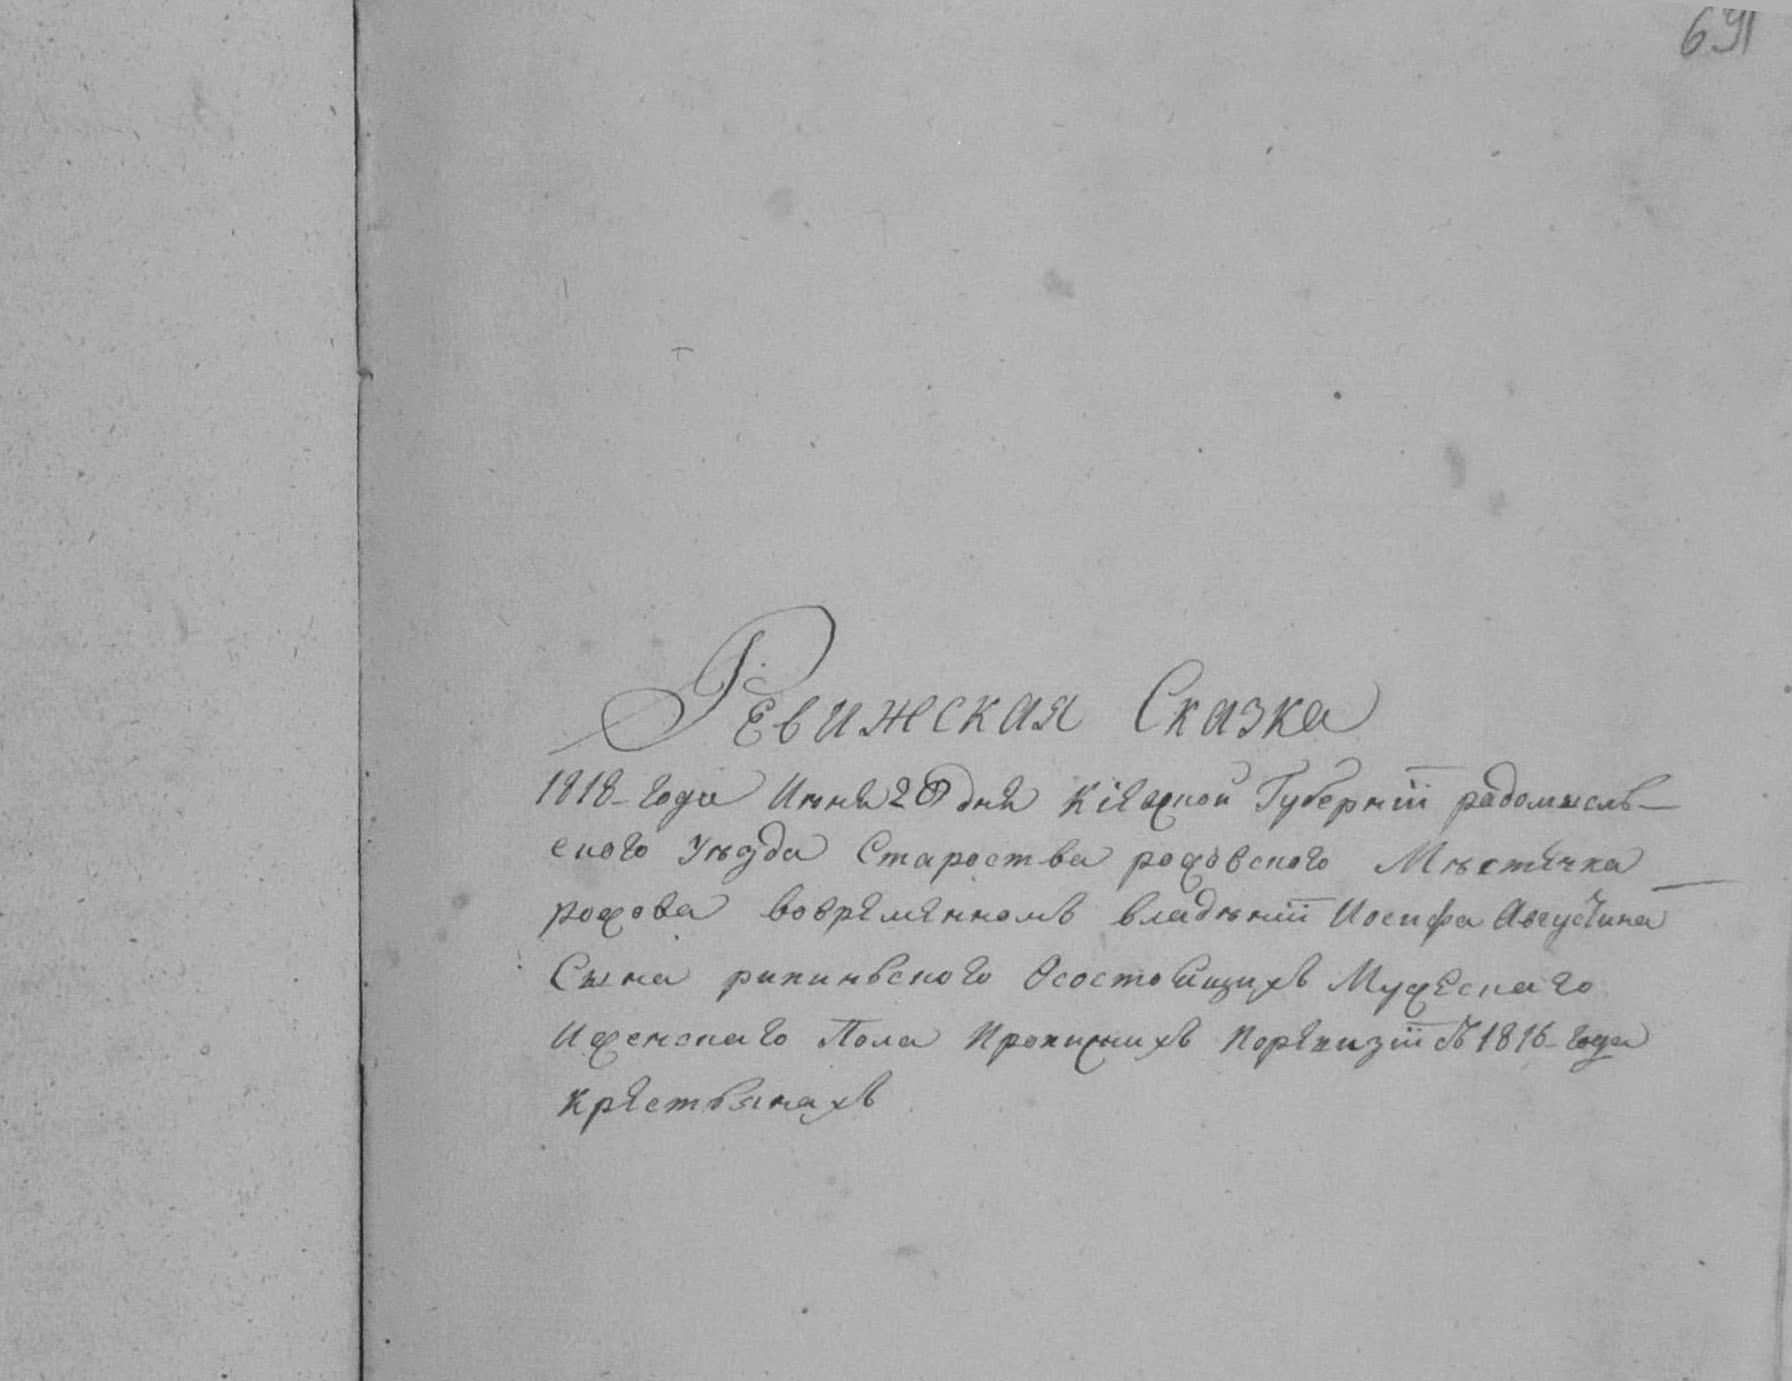 691
Ревижская Сказка
1818 года Июня 20 дня Кіевской Губерніи радомысль-
ского уѣзда Староства рожовского Мѣстечка
рожова вовременномъ владѣніи Иосифа Августина
Сына рилиньского Осостоящихъ Мужескаго
Иженскаго Пола Ипохъ Поревизіи съ 1816 года
крестьянахъ